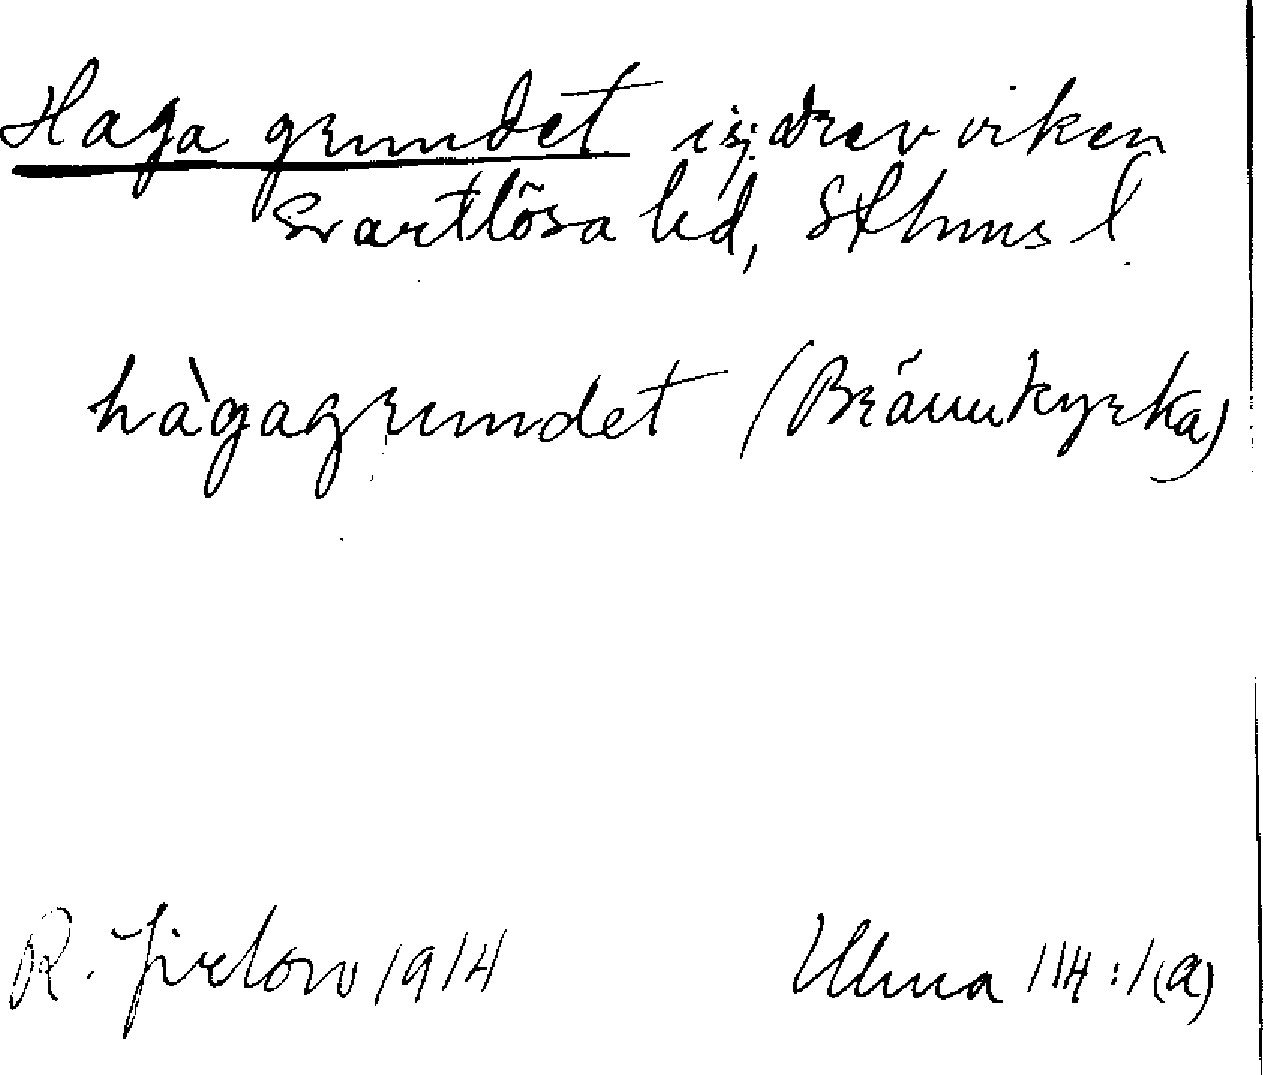 Haga grundet i Fjäderviken
Svartlösa hd, Sthms l.
hàgagrundet (Brännkyrka)
R. Jirlow 1914 Ulma 114:1(a)